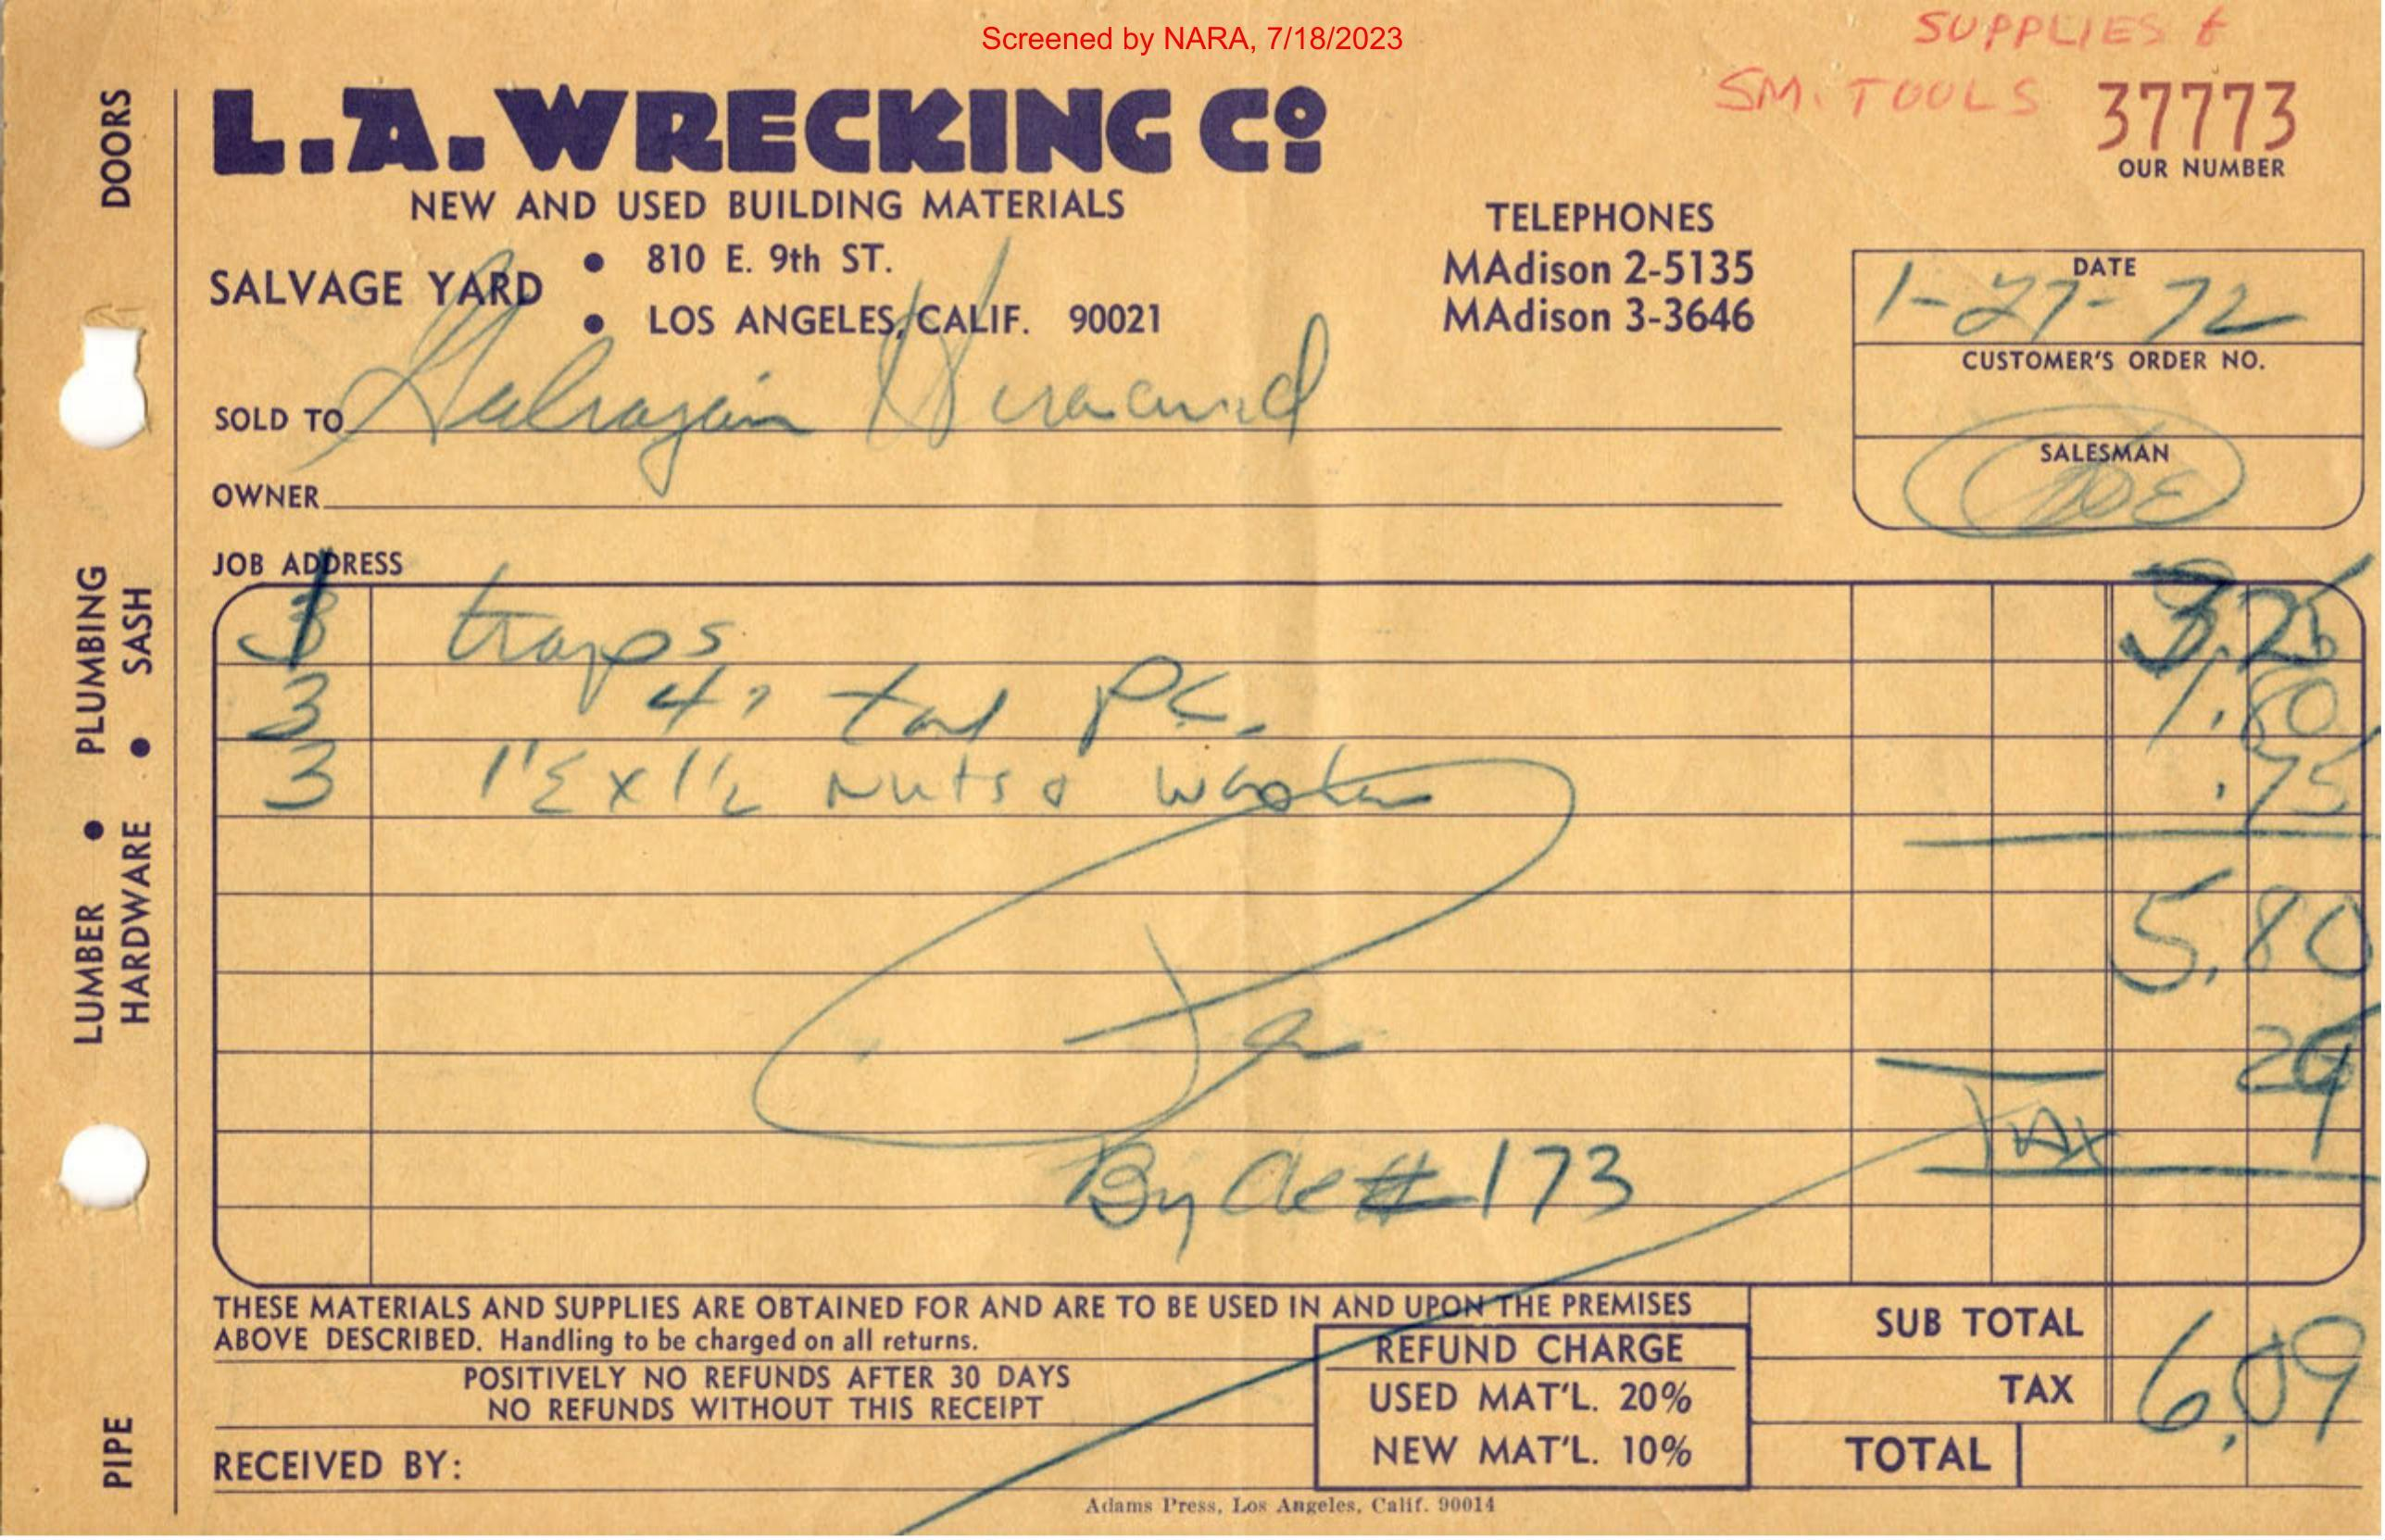 Screened by NARA, 7/18/2023
SUPPLIES &
SM. TOOLS
37773
OUR NUMBER
L.A. WRECKING Cº
NEW AND USED BUILDING MATERIALS
SALVAGE YARD • 810 E. 9th ST.
• LOS ANGELES, CALIF. 90021
TELEPHONES
MAdison 2-5135
MAdison 3-3646
DATE
1-27-72
CUSTOMER'S ORDER NO.
SALESMAN
JOE
SOLD TO
OWNER
JOB ADDRESS
DOORS
PLUMBING • SASH
LUMBER • HARDWARE
PIPE
3 traps 3.25
3 PC. 1.80
3 1 1/2 x 1 1/2 Nuts & .75
5.80
29
TAX
By #173
THESE MATERIALS AND SUPPLIES ARE OBTAINED FOR AND ARE TO BE USED IN AND UPON THE PREMISES
ABOVE DESCRIBED. Handling to be charged on all returns.
POSITIVELY NO REFUNDS AFTER 30 DAYS
NO REFUNDS WITHOUT THIS RECEIPT
RECEIVED BY:
REFUND CHARGE
USED MAT'L. 20%
NEW MAT'L. 10%
SUB TOTAL
TAX
6.09
TOTAL
Adams Press, Los Angeles, Calif. 90014